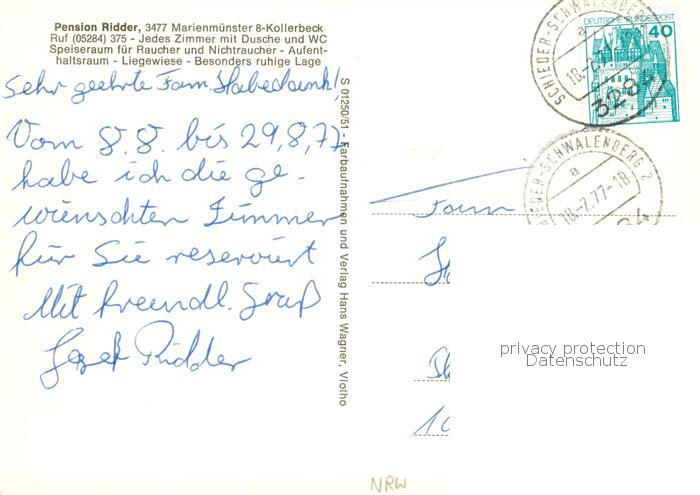 Pension Ridder, 3477 Marienmünster 8-Kollerbeck
Ruf (05284) 375 - Jedes Zimmer mit Dusche und WC
Speiseraum für Raucher und Nichtraucher - Aufent-
haltsraum - Liegewiese - Besonders ruhige Lage
Sehr geehrte Fam. Habedank!
Vom 8.8. bis 29.8.77
habe ich die ge-
wünschten Zimmer
für Sie reserviert
Mit freundl. Gruß
Josef Ridder
S 01250/51 - Farbaufnahmen und Verlag Hans Wagner, Vlotho
DEUTSCHE BUNDESPOST
40
SCHIEDER-SCHWALENBERG
a
3284
SCHWALENBERG 2
a
18-7.77-18
Fam
privacy protection
Datenschutz
NRW